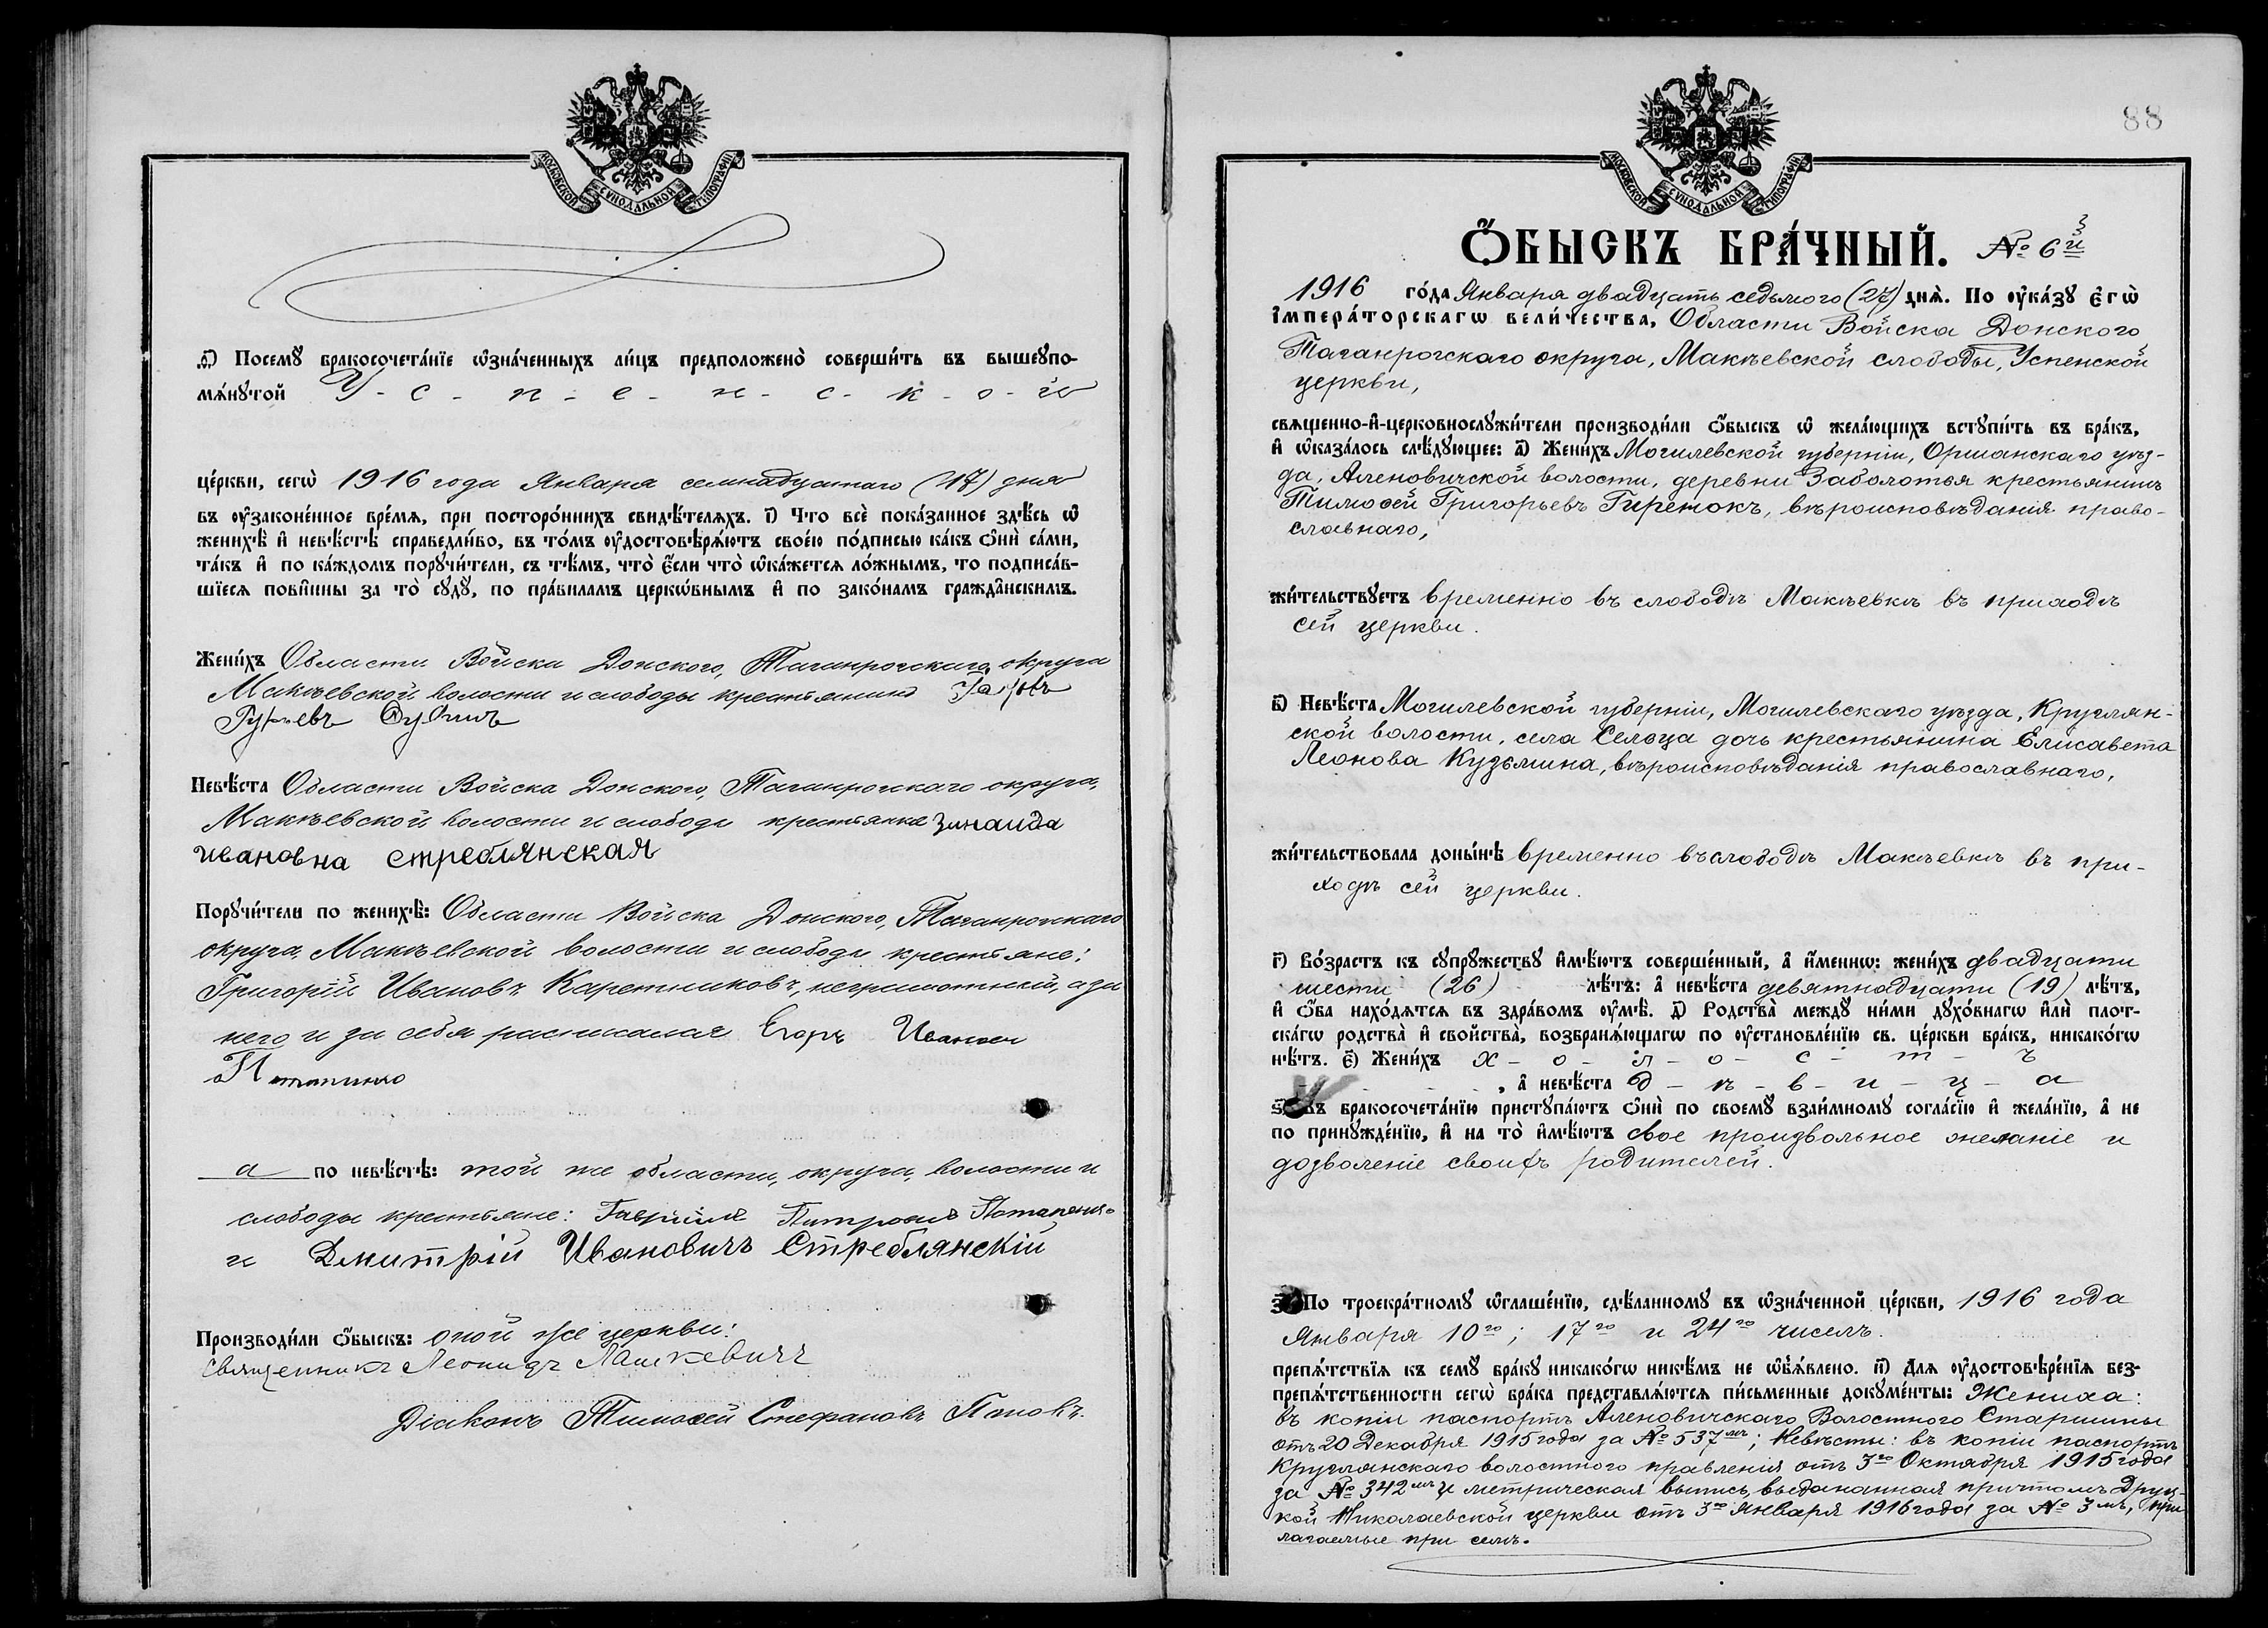 МОСКОВСКОЙ СѴНОДАЛЬНОЙ ТИПОГРАФІИ
Ѳ҃) Посемꙋ бракосочета́нїе ѡзна́ченныхъ ли́цъ предположено̀ соверши́ть въ вышеꙋпо-
мѧ́нꙋтой У - с - п - е - н - с - к - о - й
це́ркви, сегѡ̀ 1916 года Января семнадцатаго (17) дня
въ ᲂу҆законе́нное вре́мѧ, при посторо́ннихъ свидѣ́телѧхъ. І҃) Что всѐ пока́занное здѣ́сь ѡ҆
женихѣ̀ и҆ невѣ́стѣ справедли́во, въ то́мъ ᲂу҆достовѣрѧ́ютъ свое́ю по́дписью ка́къ ѻ҆нѝ са́ми,
та́къ и҆ по ка́ждомъ порꙋчи́тели, съ тѣ́мъ, что̀ є҆́сли что̀ ѡ҆ка́жетсѧ ло́жнымъ, то подписа́в-
шїесѧ пови́нны за то̀ сꙋдꙋ̀, по пра́виламъ церкѡ́внымъ и҆ по зако́намъ гражда̑нскимъ.
Жени́хъ Области Войска Донского, Таганрогскаго округа
Макѣевской волости и слободы крестьянинъ
Невѣ́ста Области Войска Донского, Таганрогскаго округа,
Макѣевской волости и слободы крестьянка Зинаида
Ивановна Стреблянская
Порꙋчи́тели по женихѣ̀: Области Войска Донского, Таганрогскаго
округа, Макѣевской волости и слободы крестьяне:
Григорій Ивановъ Каретниковъ, неграмотный, а за
него и за себя расписался Егоръ Иванов
а по невѣ́стѣ: той же области, округа, волости и
слободы крестьяне: Гавріилъ Петровъ Потапенко
и Дмитрій Ивановичъ Стреблянскій
Производи́ли ѻ҆́быскъ: оной же церкви:
Священникъ Леонидъ Лашкевичъ
Діаконъ Тимоѳей Стефановъ Поповъ.
88
МОСКОВСКОЙ СѴНОДАЛЬНОЙ ТИПОГРАФІИ
Ѻ҆́БЫСКЪ БРА́ЧНЫЙ. № 6й
1916 го́да Января двадцать седьмого (27) днѧ̀. По ᲂу҆ка́зꙋ є҆гѡ̀
і҆мпера́торскагѡ вели́чества, Области Войска Донского
Таганрогскаго округа, Макѣевской слободы, Успенской
церкви,
свѧщенно-и҆-церковнослꙋжи́тели производи́ли ѻ҆́быскъ ѡ҆ жела́ющихъ встꙋпи́ть въ бра́къ,
и҆ ѡ҆каза́лось слѣ́дꙋющее: А҃) Жени́хъ Могилевской губерніи, Оршанскаго уѣз-
да, Аленовичской волости, деревни Заболотья крестьянинъ
Тимоѳей Григорьевъ Гиренокъ, вѣроисповѣданія право-
славнаго,
жи́тельствꙋетъ временно въ слободѣ Макѣевкѣ въ приходѣ
сей церкви.
В҃) Невѣ́ста Могилевской губерніи, Могилевскаго уѣзда, Круглян-
ской волости, села Сельца дочь крестьянина Елисавета
Леонова Кузьмина, вѣроисповѣданія православнаго,
жи́тельствовала доны́нѣ временно въ слободѣ Макѣевкѣ въ при-
ходѣ сей церкви.
Г҃) Во́зрастъ къ сꙋпрꙋ́жествꙋ и҆мѣ́ютъ соверше́нный, а҆ и҆́менно: жени́хъ двадцати
шести (26) лѣ́тъ: а҆ невѣ́ста девятнадцати (19) лѣ́тъ,
и҆ ѻ҆́ба нахо́дѧтсѧ въ здра́вомъ ᲂу҆мѣ̀. Д҃) Родства̀ междꙋ ни́ми дꙋхо́внагѡ и҆лѝ плот-
ска́гѡ родства̀ и҆ свойства̀, возбранѧ́ющагѡ по ᲂу҆становле́нїю св. це́ркви бра́къ, никако́гѡ
нѣ́тъ. Е҃) Жени́хъ х - о - л - о - с - т - ъ
, а҆ невѣ́ста д - ѣ - в - и - ц - а
Ѕ҃) Къ бракосочета́нїю пристꙋпа́ютъ ѻ҆нѝ по своемꙋ̀ взаи́мномꙋ согла́сїю и҆ жела́нїю, а҆ не
по принꙋжде́нїю, и҆ на то̀ и҆мѣ́ютъ свое произвольное желаніе и
дозволеніе своихъ родителей.
З҃) По троекра́тномꙋ ѡ҆глаше́нїю, сдѣ́ланномꙋ въ ѡ҆зна́ченной це́ркви, 1916 года
Января 10го; 17го и 24го чиселъ.
препѧ́тствїѧ къ семꙋ̀ бра́кꙋ никако́гѡ никѣ́мъ не ѡ҆б̾ѧ́влено. И҃) Длѧ ᲂу҆достовѣре́нїѧ без-
препѧ́тственности сегѡ̀ бра́ка представлѧ́ютсѧ пи́сьменные докꙋме́нты: Жениха:
въ копіи паспортъ Аленовичскаго Волостного Старшины
отъ 20 Декабря 1915 года за № 537мъ; Невѣсты: въ копіи паспортъ
Круглянскаго волостного правленія отъ 3го Октября 1915 года
за № 342мъ и метрическая выпись, выданная причтомъ Друц-
кой Николаевской церкви отъ 3го Января 1916 года за № 3мъ, при
лагаемые при семъ.